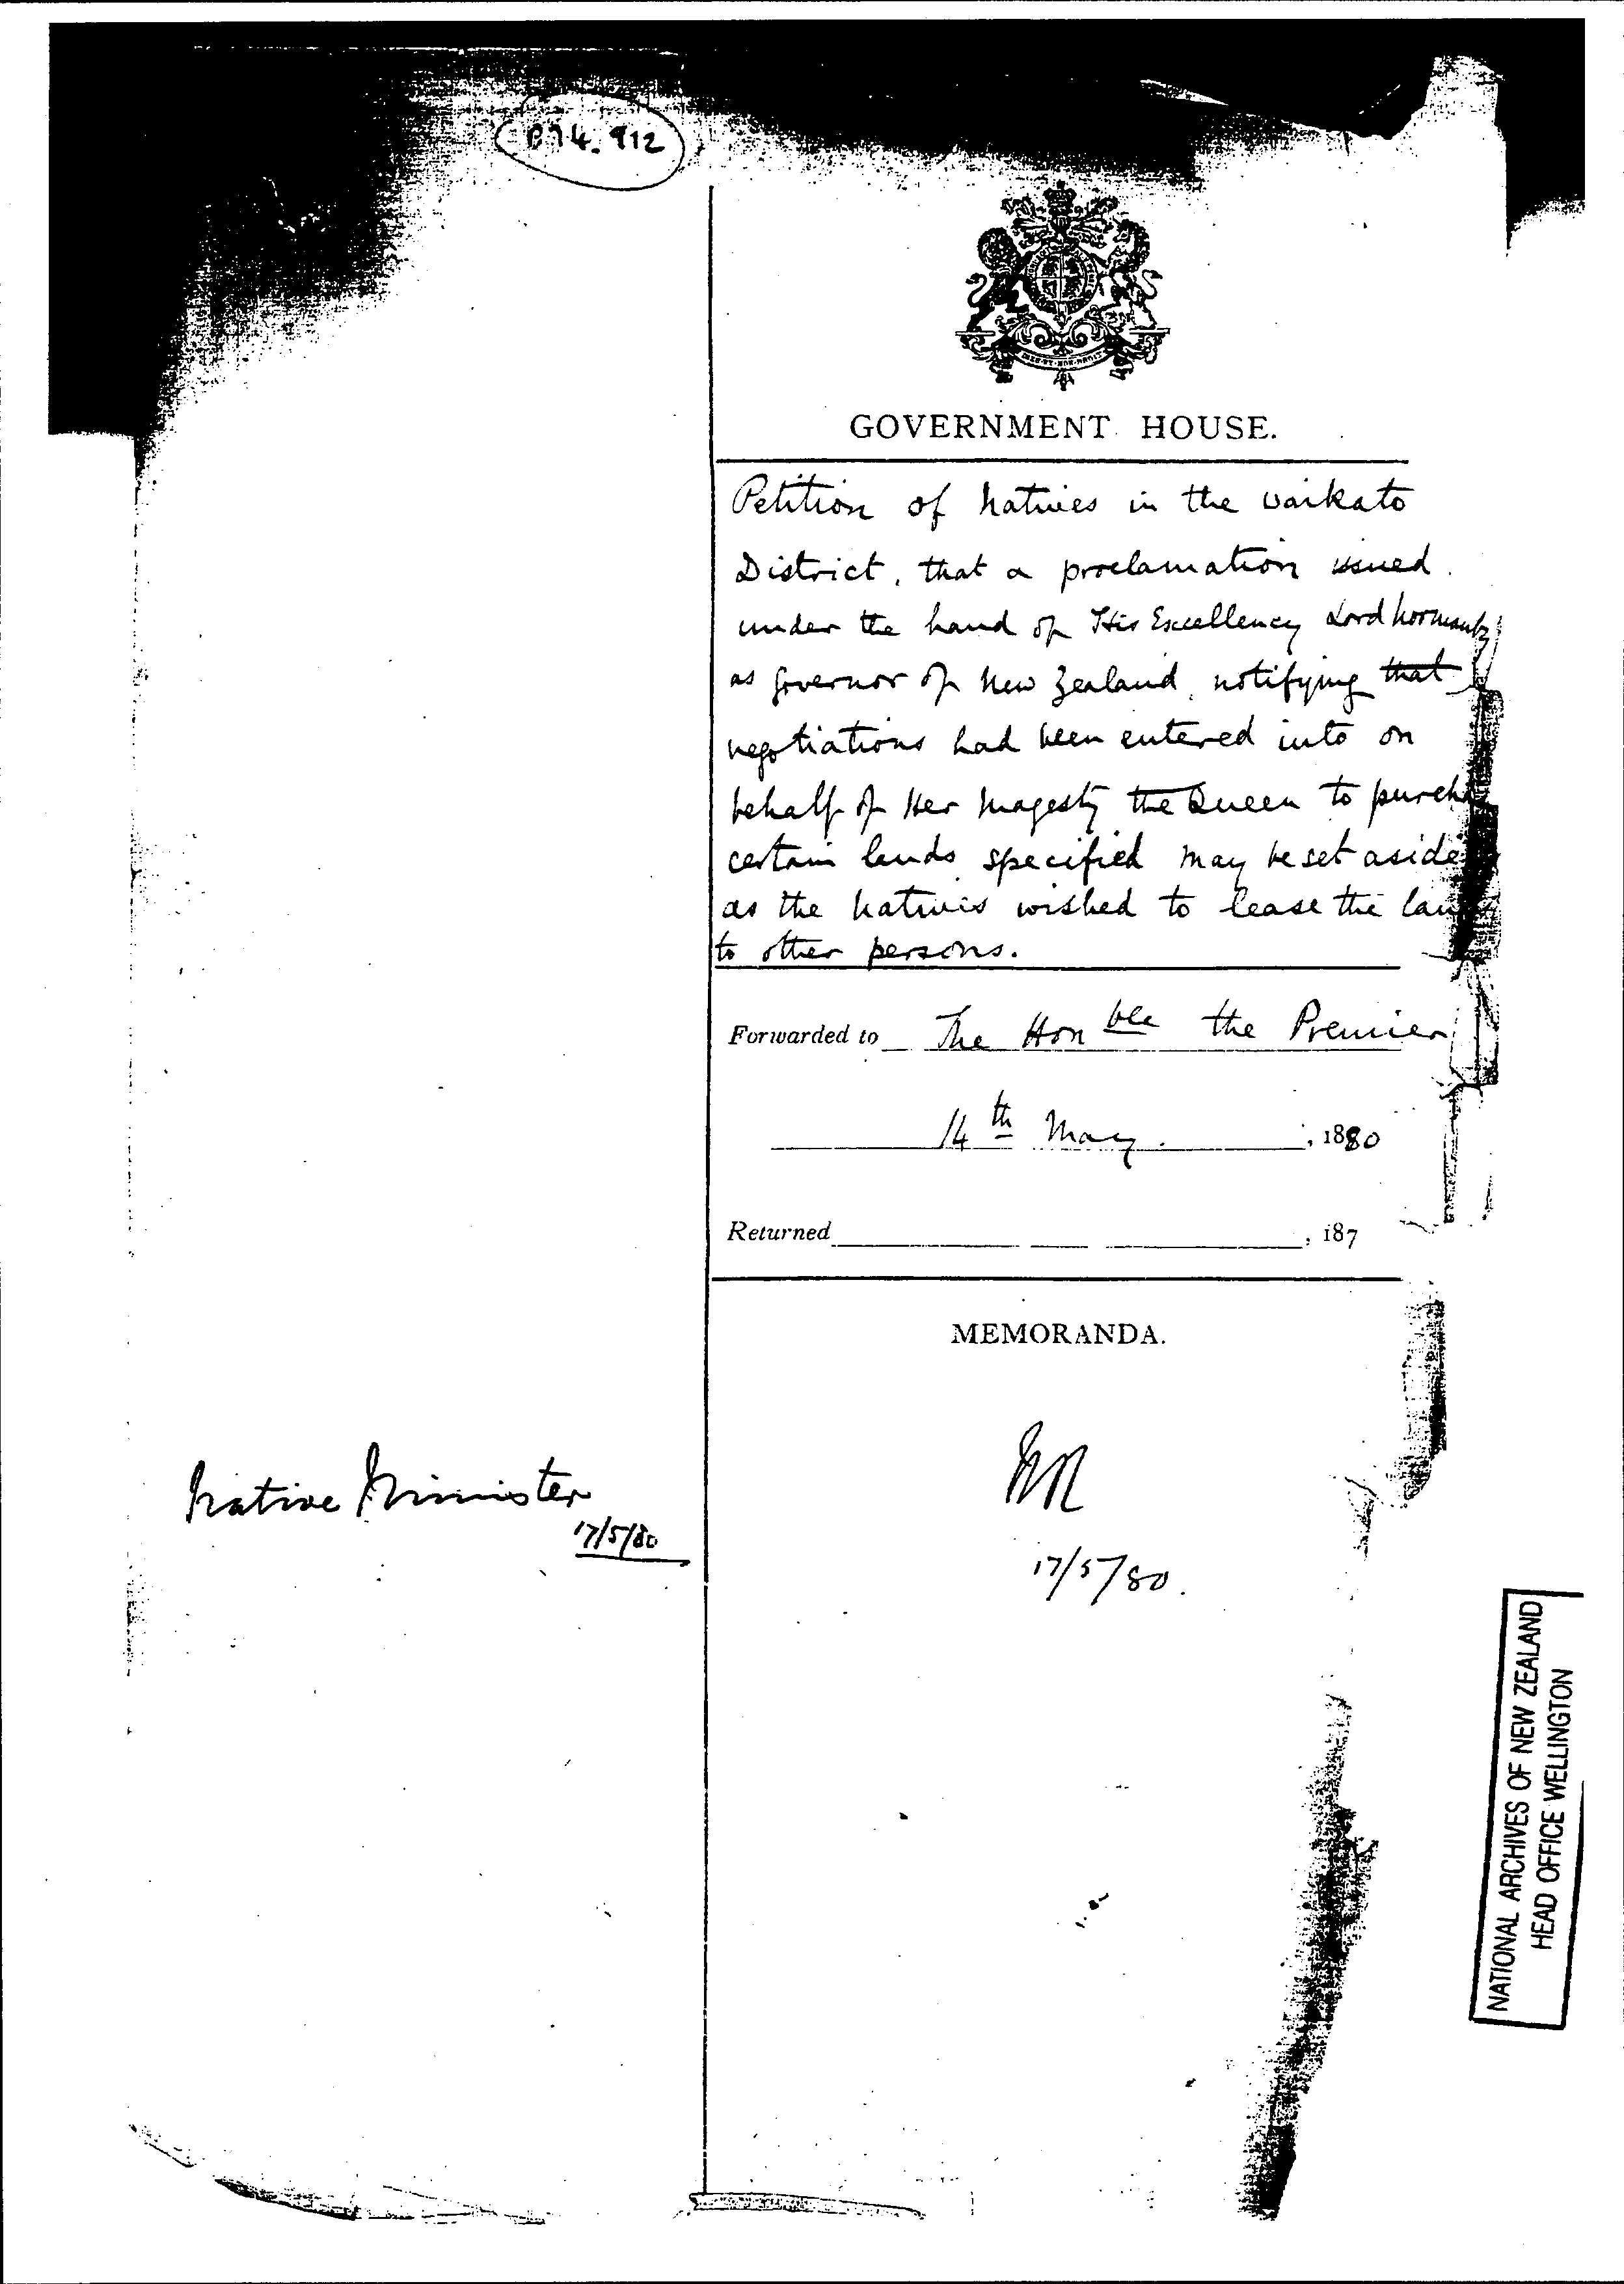 B74.912
GOVERNMENT HOUSE.
Petition of Natives in the Waikato
District, that a proclamation issued
under the hand of His Excellency Lord Normanby
as Governor of New Zealand, notifying that
negotiations had been entered into on
behalf of Her Magesty the Queen to purch
certain lands specified may be set aside
as the Natives wished to lease the lan
to other persons.
Forwarded to The Honble the Premier
14th May. , 1880
Returned , 187
MEMORANDA.
Native Minister
17/5/80
17/5/80.
NATIONAL ARCHIVES OF NEW ZEALAND
HEAD OFFICE WELLINGTON